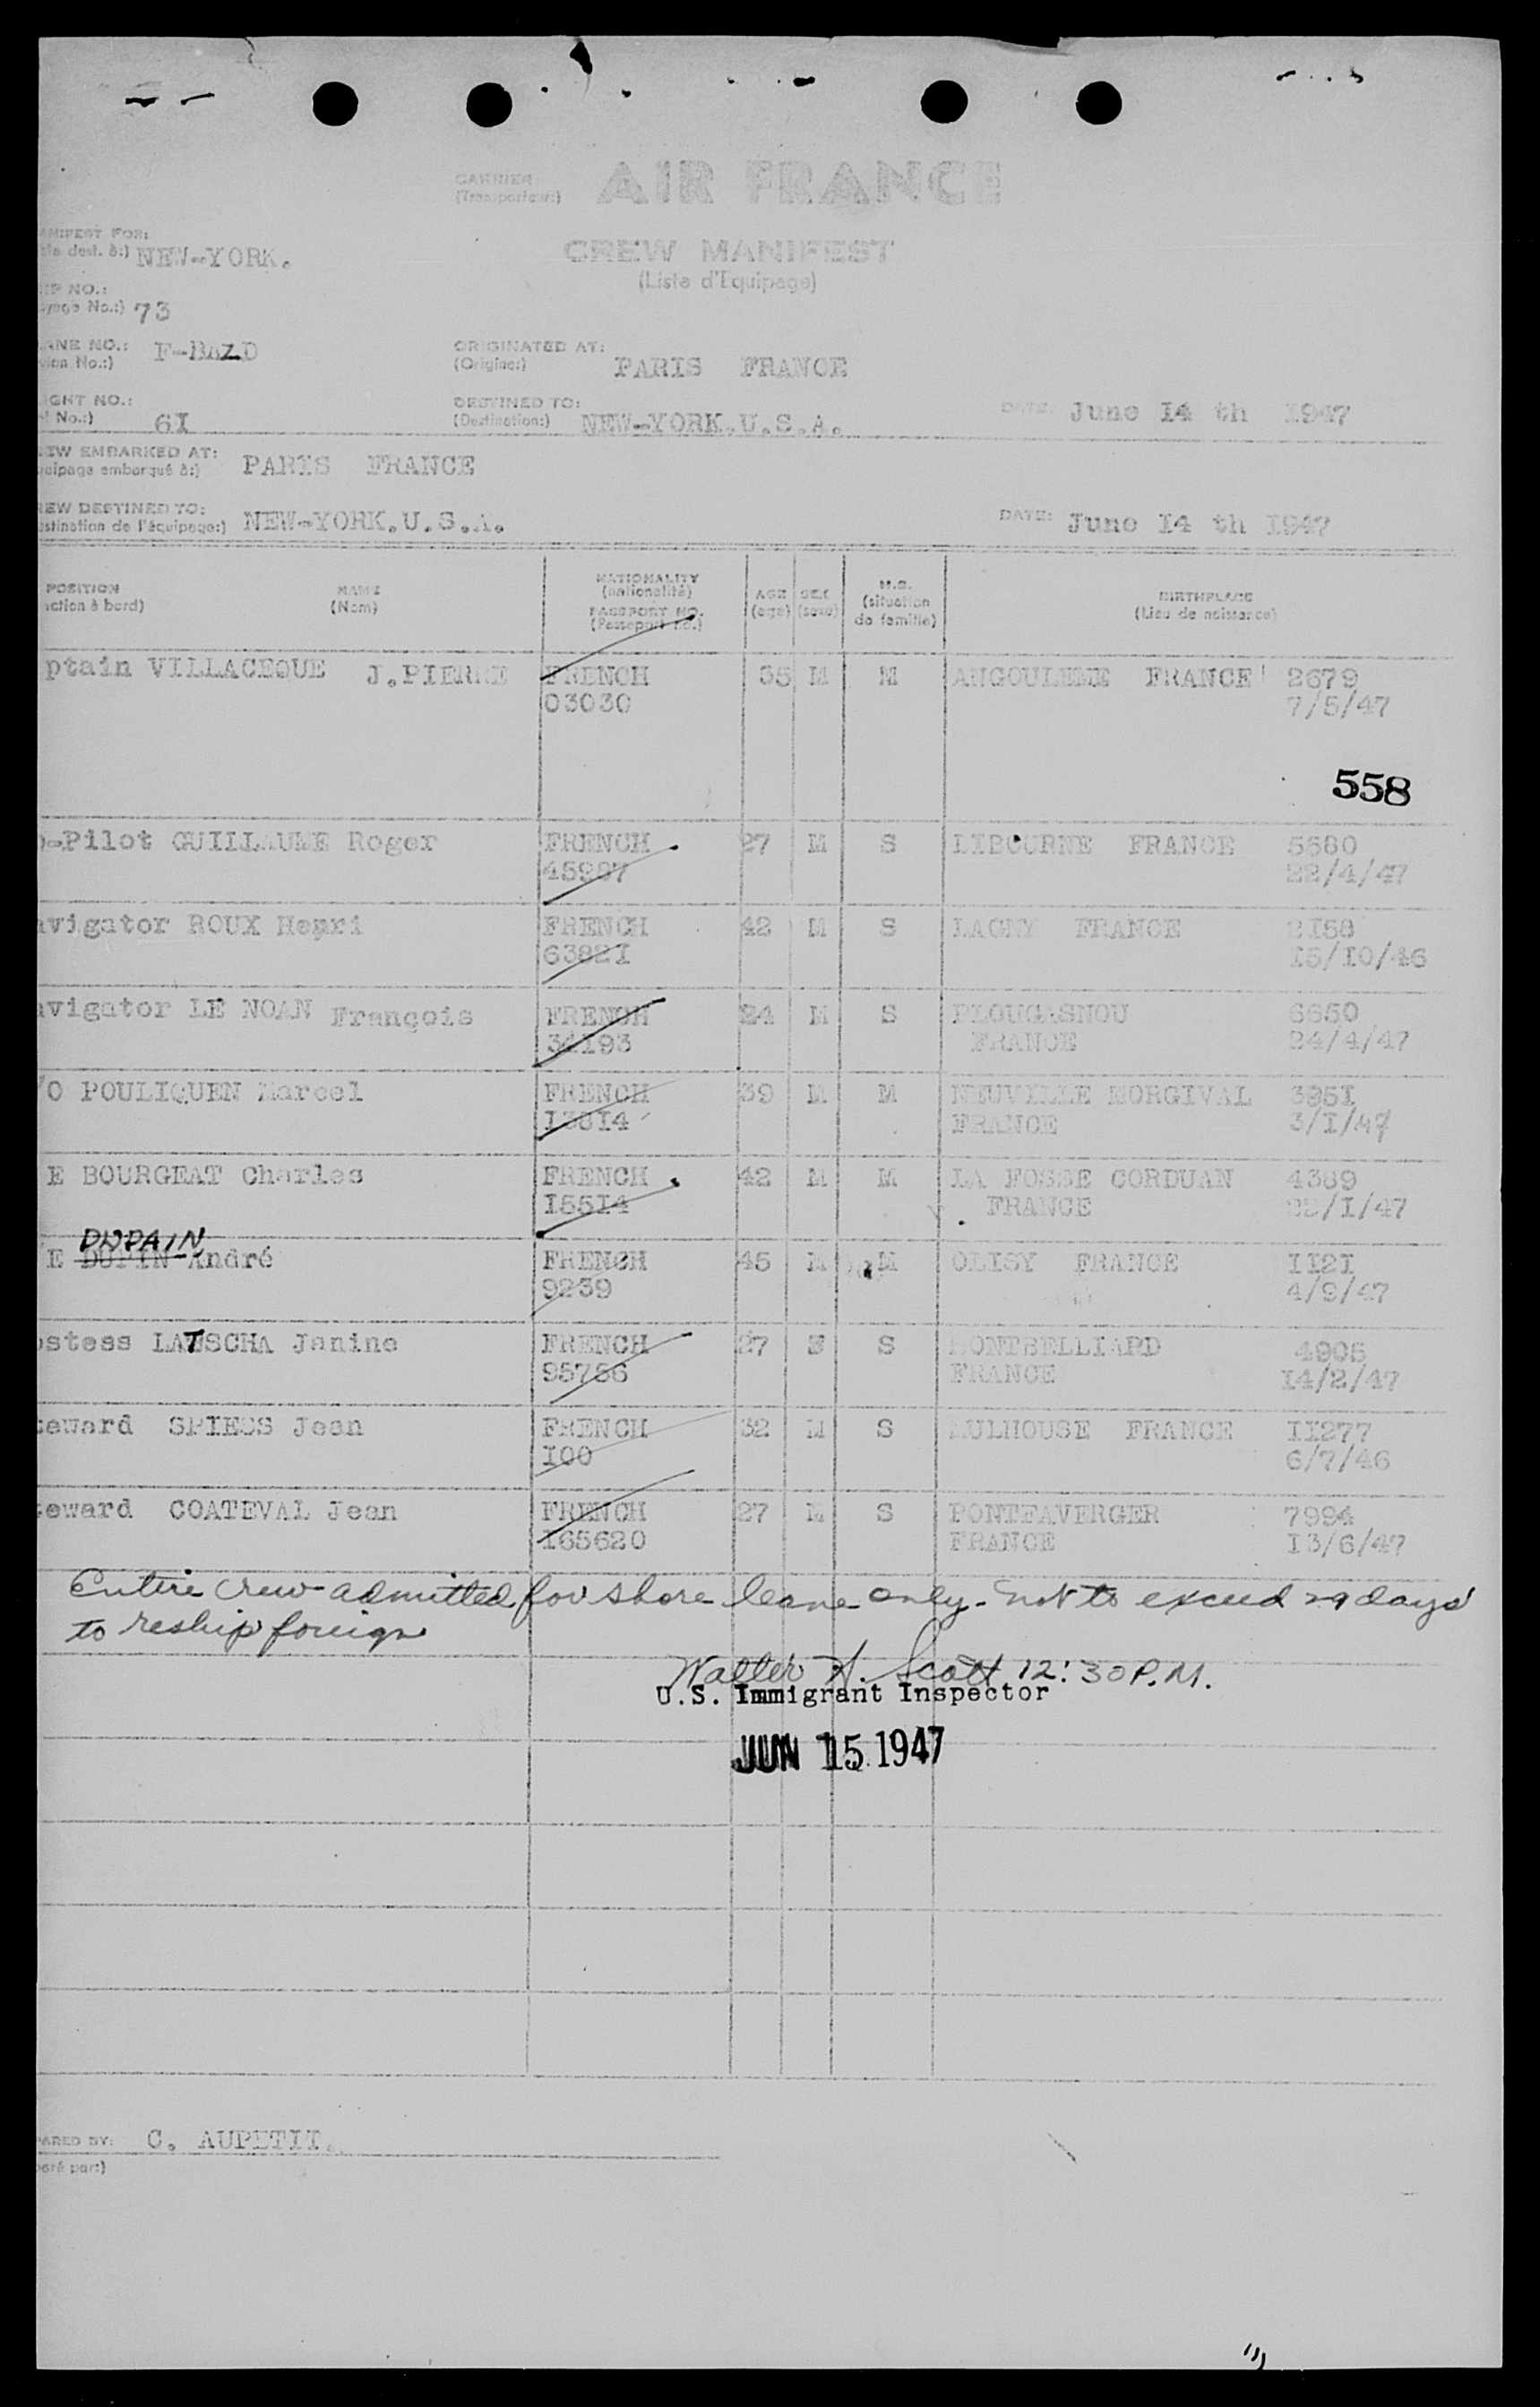 CARRIER AIR FRANCE
(Transporteur:)
MANIFEST FOR:
dest. à:) NEW-YORK.
CREW MANIFEST
(Liste d'Equipage)
NO.:
No.:) 73
ANE NO.: F-BAZD
No.:)
ORIGINATED AT:
(Origine:) PARIS FRANCE
IGHT NO.:
No.:) 6I
DESTINED TO:
(Destination:) NEW-YORK.U.S.A.
DATE: June I4 th I947
EW EMBARKED AT:
uipage embarqué à:) PARIS FRANCE
EW DESTINED TO:
stination de l'équipage:) NEW-YORK.U.S.A.
DATE: June I4 th I947
POSITION NAME NATIONALITY AGE SEX M.S. BIRTHPLACE
ction à bord) (Nom) (nationalité) (age) (sexe) (situation de famille) (Lieu de naissance)
PASSPORT NO.
(Passeport no.)
ptain VILLACEQUE J.PIERRE FRENCH 35 M M ANGOULEME FRANCE 2679
03030 7/5/47
558
-Pilot GUILLAUME Roger FRENCH 27 M S LIBOURNE FRANCE 5580
45987 22/4/47
avigator ROUX Henri FRENCH 42 M S LAGNY FRANCE 2I58
6382I I5/I0/46
avigator LE NOAN François FRENCH 24 M S PLOUGASNOU 6650
34193 FRANCE 24/4/47
/O POULIQUEN Marcel FRENCH 39 M M NEUVILLE MORGIVAL 395I
I38I4 FRANCE 3/I/47
E BOURGEAT Charles FRENCH 42 M M LA FOSSE CORDUAN 4389
I55I4 FRANCE 22/I/47
DUPAIN
E DUPIN André FRENCH 45 M M OLISY FRANCE II2I
9239 4/9/47
ostess LATSCHA Janine FRENCH 27 F S MONTBELLIARD 4905
95756 FRANCE I4/2/47
teward SPIESS Jean FRENCH 32 M S MULHOUSE FRANCE II277
I00 6/7/46
teward COATEVAL Jean FRENCH 27 M S PONTFAVERGER 7994
I65620 FRANCE I3/6/47
Entire Crew admitted for shore leave only - not to exceed 29 days
to reship foreign
Walter A. Scott 12:30 P.M.
U.S. Immigrant Inspector
JUN 15 1947
PARED BY: C. AUPETIT.
paré par:)